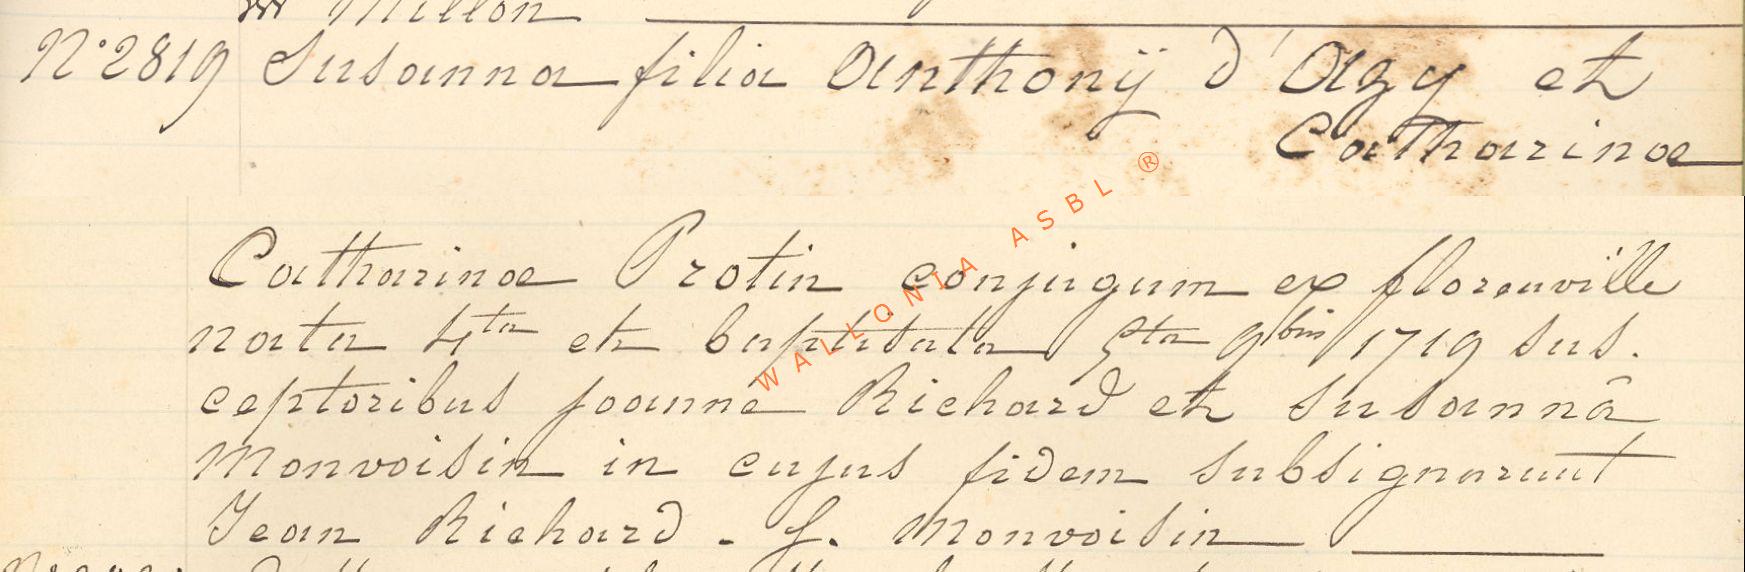 Millon
N° 2819 Susanna filia Anthonÿ d'Agy et
Catharinae
Catharinae Protin conjugum ex florenville
nata 4ta et baptisata 5ta 9bris 1719 sus.
ceptoribus joanne Richard et Susannâ
Monvoisin in cujus fidem subsignarunt
Jean Richard . S. Monvoisin
WALLONIA ASBL ®